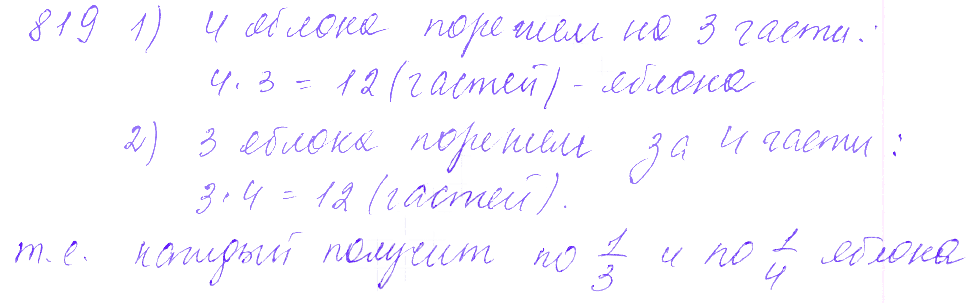 819 1) 4 яблока порежем на 3 части:
4·3 = 12 (частей) - яблока
2) 3 яблока порежем за 4 части:
3·4 = 12 (частей).
т.е. каждый получит по 1/3 и по 1/4 яблока